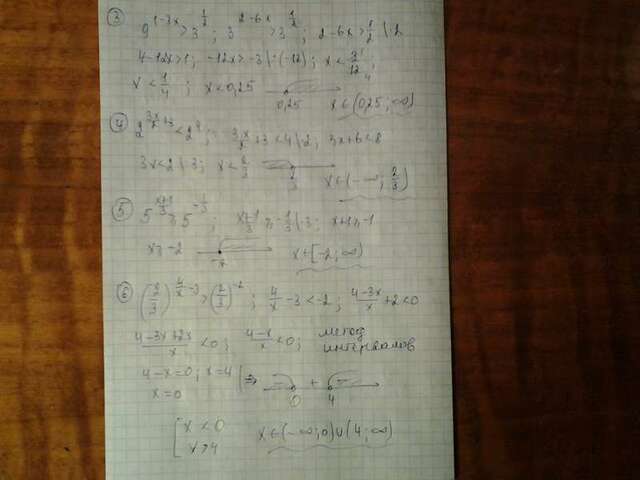 ③ 9^(1-3x) > 3^(1/2) ; 3^(2-6x) > 3^(1/2) ; 2-6x > 1/2 |·2
4-12x > 1 ; -12x > -3 |:(-12) ; x < 3/12 ;
x < 1/4 ; x < 0,25 0,25 x ∈ (0,25 ; ∞)
④ 2^(3x/2+3) < 2^4 ; 3x/2 + 3 < 4 |·2 ; 3x+6 < 8
3x < 2 |:3 ; x < 2/3 2/3 x ∈ (-∞ ; 2/3)
⑤ 5^((x+1)/3) ≥ 5^(-1/3) ; (x+1)/3 ≥ -1/3 |·3 ; x+1 ≥ -1
x ≥ -2 -2 x ∈ [-2 ; ∞)
⑥ (2/3)^(4/x-3) > (2/3)^(-2) ; 4/x - 3 < -2 ; (4-3x)/x + 2 < 0
(4-3x+2x)/x < 0 ; (4-x)/x < 0 ; метод
интервалов
4-x=0 ; x=4 | ⇒ - + -
x=0 0 4
[ x < 0
x > 4 x ∈ (-∞ ; 0) ∪ (4 ; ∞)